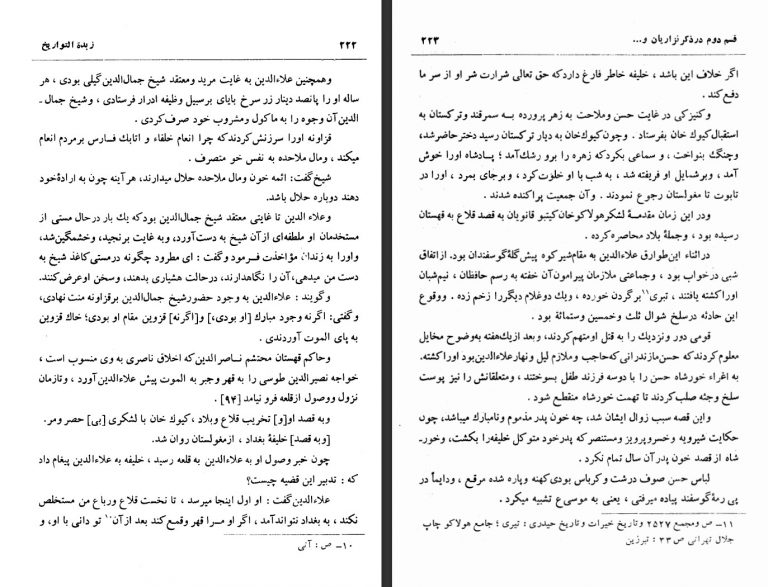 زبدة التواریخ
۲۲۲
وهمچنین علاءالدین به غایت مرید ومعتقد شیخ جمال‌الدین گیلی بودی ، هر
ساله او را پانصد دینار زر سرخ بابای برسبیل وظیفه ادرار فرستادی ، وشیخ جمال ـ
الدین آن وجوه را به ماکول ومشروب خود صرف کردی .
قزاونه اورا سرزنش کردند که چرا انعام خلفاء و اتابک فارس برمردم انعام
میکند ، ومال ملاحده به نفس خو متصرف .
شیخ گفت: ائمه خون ومال ملاحده حلال میدارند، هرآینه چون به ارادهٔ خود
دهند دوباره حلال باشد.
وعلاء الدین تا غایتی معتقد شیخ جمال‌الدین بود که یك بار درحال مستی از
مستخدمان او ملطفه‌ای از آن شیخ به دست آورد، وبه غایت برنجید، وخشمگین شد،
واورا به زندان مؤاخذت فرمود و گفت : ای مطرود چگونه درمستی کاغذ شیخ به
دست من میدهی، آن را نگاهدارند، درحالت هشیاری بدهند، وسخن اوعرض کنند.
و گویند : علاءالدین به وجود حضور شیخ جمال‌الدین برقزاونه منت نهادی،
و گفتی: اگر نه وجود مبارك [او بودی،] و[اگرنه] قزوین مقام او بودی؛ خاك قزوین
به پای الموت آوردندی .
وحاکم قهستان محتشم ناصرالدین که اخلاق ناصری به وی منسوب است ،
خواجه نصیرالدین طوسی را به قهر وجبر به الموت پیش علاءالدین آورد ، وتازمان
نزول ووصول ازقلعه فرو نیامد [۹۴] .
وبه قصد او[و] تخریب قلاع وبلاد ، کیوك خان با لشکری [بی] حصر ومر.
[وبه قصد] خلیفهٔ بغداد ، ازمغولستان روان شد.
چون خبر وصول او به علاءالدین به قلعه رسید ، خلیفه به علاءالدین پیغام داد
که : تدبیر این قضیه چیست؟
علاءالدین گفت : او اول اینجا میرسد ، تا نخست قلاع ورباع من مستخلص
نکند ، به بغداد نتواند آمد ، اگر او مــرا قهر وقمع کند بعد از آن۱۰ تو دانی با او، و
۱۰ـ ص : آنی
قسم دوم درذکر نزاریان و...
۲۲۳
اگر خلاف این باشد ، خلیفه خاطر فارغ دارد که حق تعالی شرارت شر او از سر ما
دفع کند .
و کنیزکی در غایت حسن وملاحت به زهر پرورده بــه سمرقند وترکستان به
استقبال کیوك خان بفرستاد . وچون کیوك‌خان به دیار ترکستان رسید دختر حاضر شد،
وچنگ بنواخت ، و سماعی بکرد که زهره را برو رشك آمد ؛ پــادشاه اورا خوش
آمد ، وبرشمایل او فریفته شد ، به شب با او خلوت کرد ، وبرجای بمرد ، اورا در
تابوت تا مغولستان رجوع نمودند . وآن جمعیت پراکنده شدند .
ودر این زمان مقدمــهٔ لشکر هولاکوخان کیتبو قانویان به قصد قلاع به قهستان
رسیده بود ، وجملهٔ بلاد محاصره کرده .
در اثناء این طوارق علاءالدین به مقام شیرکوه پیش گلهٔ گوسفندان بود. ازاتفاق
شبی درخواب بود ، وجماعتی ملازمان پیرامون آن خفته به رسم حافظان ، نیم‌شبان
اوراکشته یافتند ، تبری۱۱ برگردن خورده ، ویك دوغلام دیگر را زخم زده . ووقوع
این حادثه درسلخ شوال ثلث وخمسین وستمائة بود .
قومی دور ونزدیك را به قتل اومتهم کردند، وبعد ازیك هفته به وضوح مخایل
معلوم کردند که حسن مازندرانی که حاجب وملازم لیل ونهار علاءالدین بود اوراکشته.
به اغراء خورشاه حسن را با دوسه فرزند طفل بسوختند ، ومتعلقانش را نیز پوست
سلخ وجثه صلب کردند تا تهمت خورشاه منقطع شود .
واین قصه سبب زوال ایشان شد، چه خون پدر مذموم ونامبارك میباشد، چون
حکایت شیرویه وخسروپرویز ومستنصر که پدرخود متوکل خلیفه را بکشت، وخورـ
شاه از قصد خون پدر آن سال تمام نکرد .
لباس حسن صوف درشت و کرباس بودی کهنه وپاره شده مرقع ، ودایماً در
پی رمهٔ گوسفند پیاده میرفتی ، یعنی به موسی ع تشبیه میکرد .
۱۱ـ ص ومجمع ۲۵۲۷ وتاریخ خیرات وتاریخ حیدری : تیری ؛ جامع هولاکو چاپ
جلال تهرانی ص ۳۳ : تبرزین